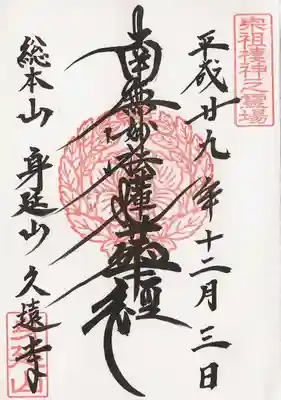 宗祖棲神之霊場
平成廿九年十二月三日
南無妙法蓮華経
総本山 身延山 久遠寺
身延山